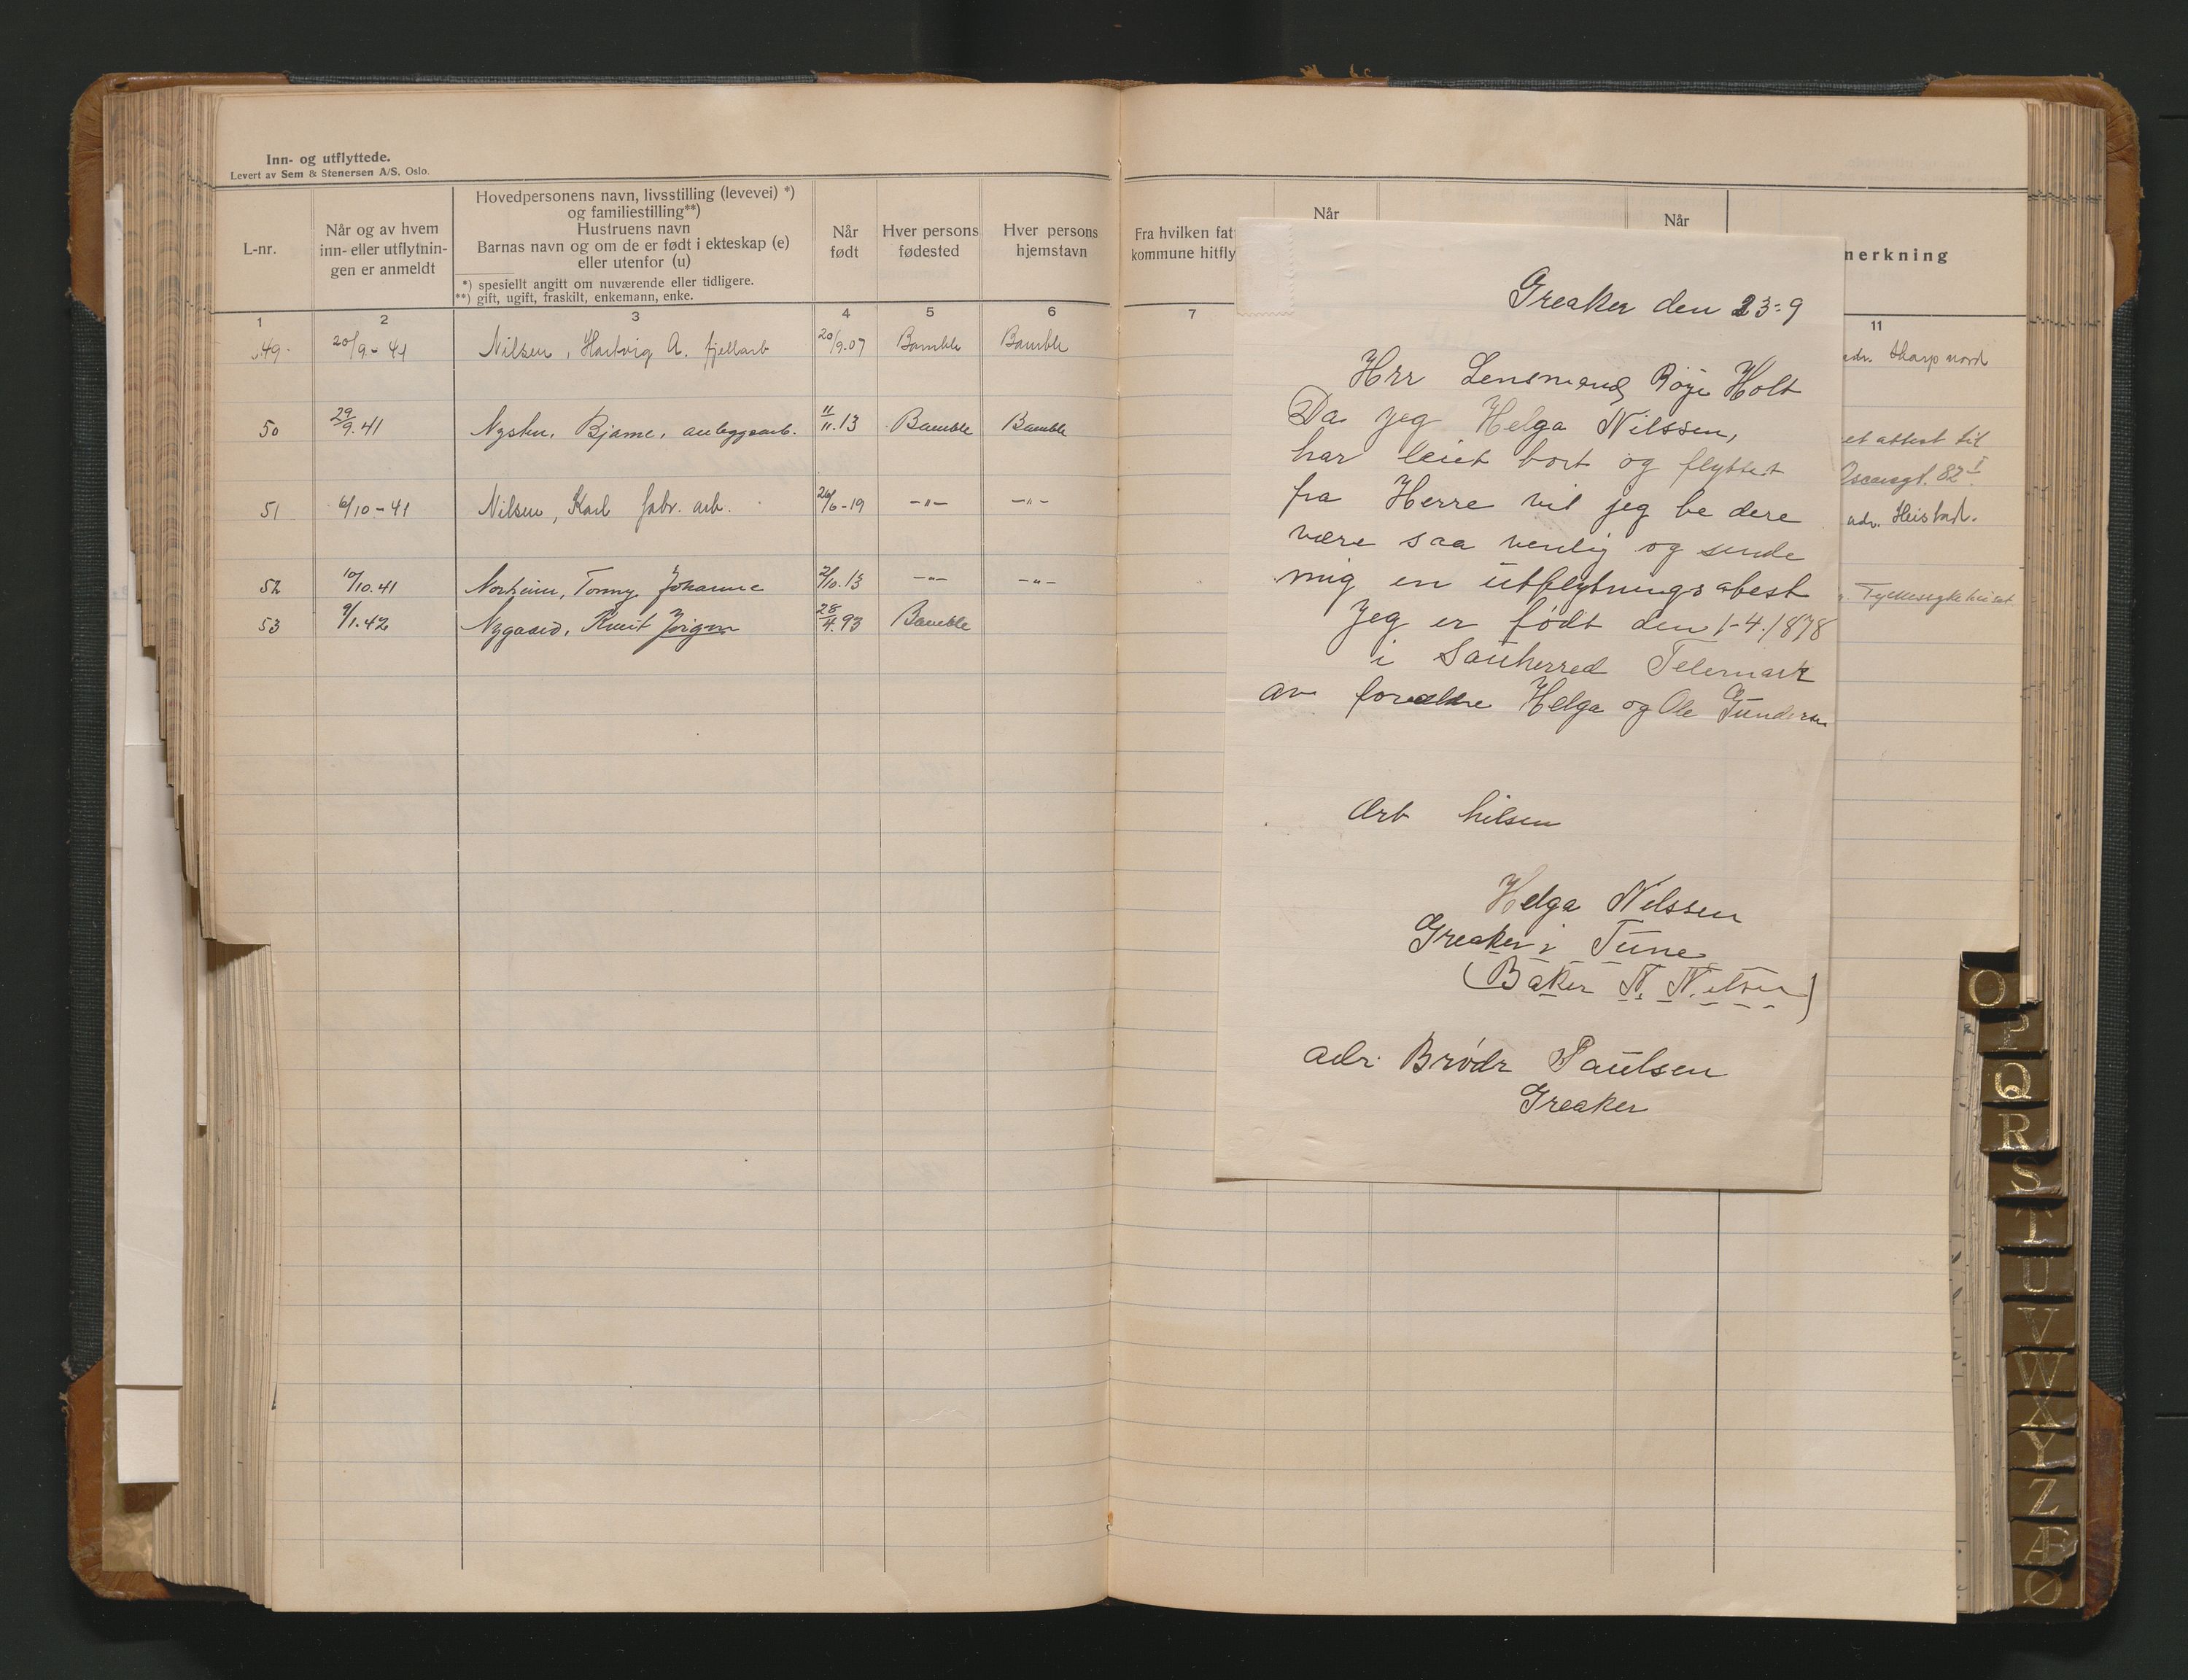 Inn- og utflyttede.
Levert av Sem & Stenersen A/S. Oslo.
L-nr.
Når og av hvem
inn- eller utflytnin-
gen er anmeldt
Hovedpersonens navn, livsstilling (levevei) *)
og familiestilling**)
Hustruens navn
Barnas navn og om de er født i ekteskap (e)
eller utenfor (u)
*) spesiellt angitt om nuværende eller tidligere.
**) gift, ugift, fraskilt, enkemann, enke.
Når
født
Hver persons
fødested
Hver persons
hjemstavn
1 2 3 4 5 6
49 20/9-41 Nilsen, Hartvig A. fjellarb 20/9-07 Bamble Bamble
50 29/9.41 Nysten, Bjarne, anleggsarb. 11/11.13 Bamble Bamble
51 6/10-41 Nilsen, Karl fabr. arb. 26/6-19 -"- -"-
52 10/10.41 Norheim, Tonny Johanne 2/10.13 -"- -"-
53 9/1.42 Nygaard, Knut Jørgen 28/4.93 Bamble
Fra hvilken fat
kommune hitfly
Når
Når
merkning
7
11
adr. Skarp nord
et attest til
Oscarsgt. 82 I
adr. Heistad.
Fylkessykehuset
Greaker den 23-9
Hrr Lensmand Røye Holt
Da jeg Helga Nilssen,
har leiet bort og flyttet
fra Herre vil jeg be dere
være saa venlig og sende
mig en utflytningsabest
Jeg er født den 1-4-1878
i Sauherred Telemark
av forældre Helga og Ole Gundersen
Ærb Nilsen
Helga Nilssen
Greaker i Tune
(Baker N. Nilsen)
adr. Brødr Paulsen
Greaker
O
P
Q
R
S
T
U
V
W
X
Y
Z
Æ
Ø